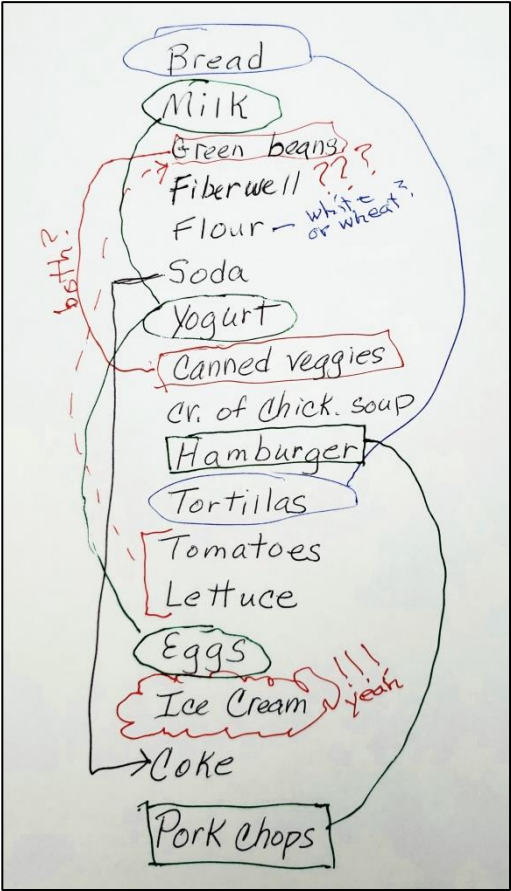 Bread
Milk
Green beans
Fiberwell ???
Flour - white
or wheat?
both?
Soda
Yogurt
Canned veggies
cr. of chick. soup
Hamburger
Tortillas
Tomatoes
Lettuce
Eggs
Ice Cream !!!
yeah
Coke
Pork chops